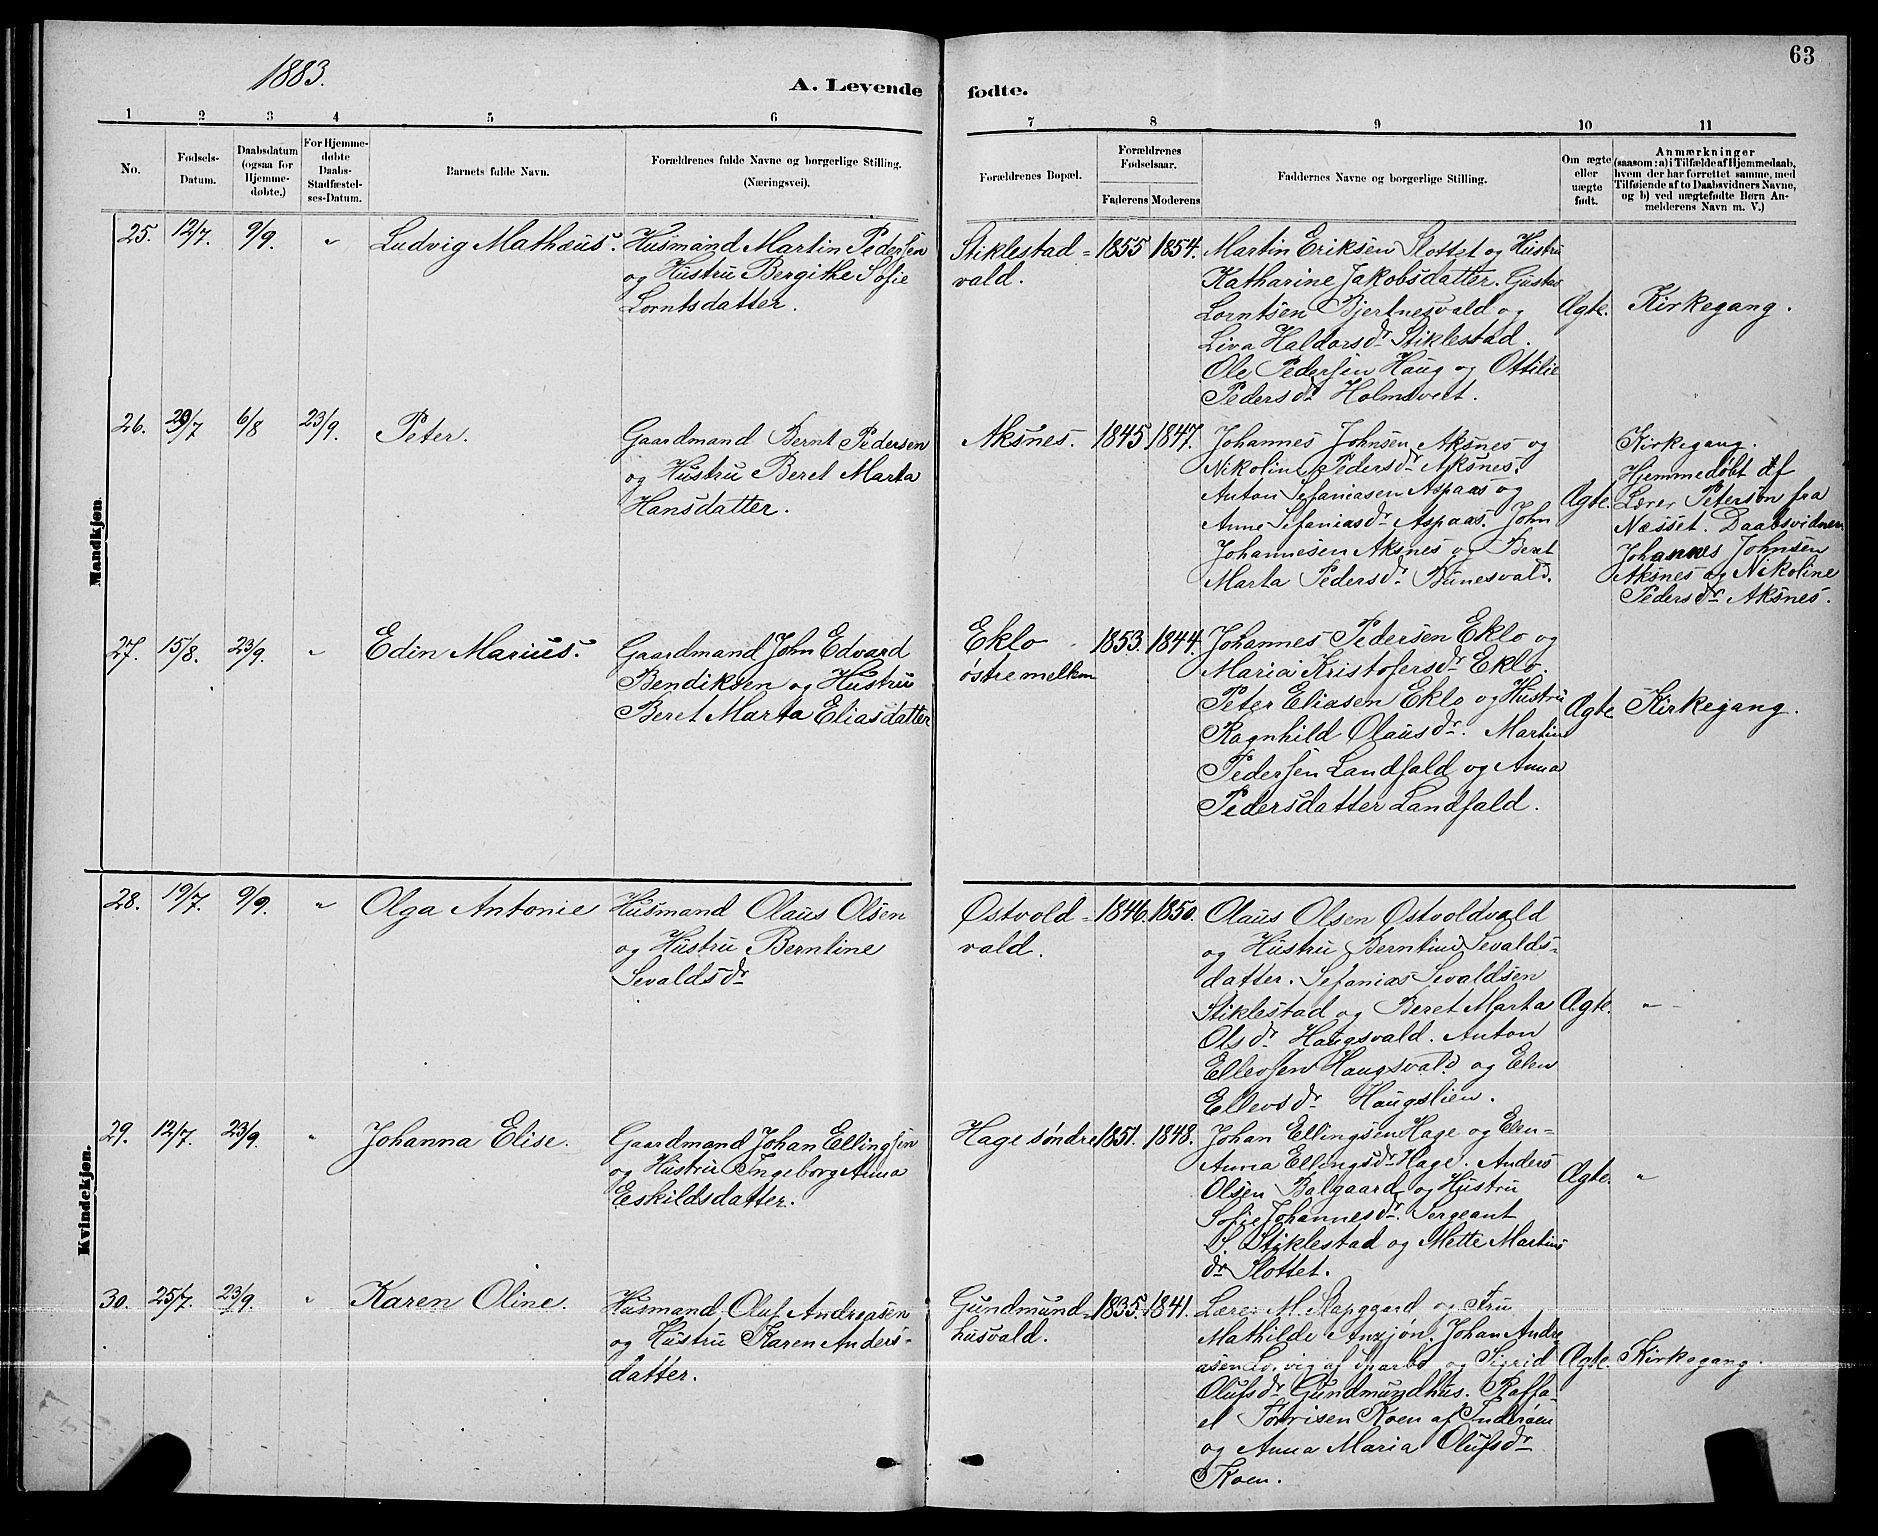 1883.
A. Levende fødte.
63
1 2 3 4 5 6 7 8 9 10 11
No.
Fødsels-
Datum.
Daabsdatum
(ogsaa for
Hjemme-
døbte.)
For Hjemme-
døbte
Daabs-
Stadfæstel-
ses-Datum.
Barnets fulde Navn.
Forældrenes fulde Navne og borgerlige Stilling.
(Næringsvei).
Forældrenes Bopæl.
Forældrenes
Fødselsaar.
Faderens Moderens
Faddernes Navne og borgerlige Stilling.
Om ægte
eller
uægte
født.
Anmærkninger
(saasom: a) i Tilfælde af Hjemmedaab,
hvem der har forrettet samme, med
Tilføiende af to Daabsvidners Navne,
og b) ved uægtefødte Børn An-
melderens Navn m. V.)
Mandkjøn
25. 12/7. 9/9. „ Ludvig Mathæus.
Husmand Martin Pedersen
og Hustru Bergithe Sofie
Lorntsdatter.
Stiklestad=
vald.
1855 1854.
Martin Eriksen Slottet og Hustru
Katharine Jakobsdatter. Gustav
Lorntsen Bjertnesvald og
Liva Haldorsdr Stiklestad.
Ole Pedersen Haug og Ottilie
Pedersdr Holmsveet.
Ægte.
Kirkegang.
26. 29/7 6/8 23/9. Peter.
Gaardmand Bernt Pedersen
og Hustru Beret Marta
Hansdatter.
Aksnes.
1845 1847.
Johannes Johnsen Aksnes og
Nikoline Pedersdr Aksnes.
Anton Sefaniasen Aspaas og
Anne Sefaniasdr Aspaas. John
Johannesen Aksnes og Beret
Marta Pedersdr Bunesvald.
Ægte.
Kirkegang.
Hjemmedøbt af
Lærer Peterson fra
Næsset. Daabsvidner
Johannes Johnsen
Aksnes og Nikoline
Pedersdr Aksnes.
27. 15/8. 23/9. „ Edin Marius.
Gaardmand John Edvard
Bendiksen og Hustru
Beret Marta Eliasdatter
Eklo
østre mellem
1853. 1844.
Johannes Pedersen Eklo og
Maria Kristofersdr Eklo.
Peter Eliasen Eklo og Hustru
Ragnhild Olausdr. Martin
Pedersen Landfald og Anna
Pedersdatter Landfald.
Ægte
Kirkegang.
Kvindekjøn.
28. 19/7. 9/9. „ Olga Antonie
Husmand Olaus Olsen
og Hustru Berntine
Sevaldsdr
Østvold=
vald.
1846. 1850.
Olaus Olsen Østvoldvald
og Hustru Berntine Sevalds-
datter. Sefanias Sevaldsen
Stiklestad og Beret Marta
Olsdr Haugsvald. Anton
Ellevsen Haugsvald og Elen
Ellevsdr Haugslien.
Ægte.
„
29. 12/7. 23/9. „ Johanna Elise.
Gaardmand Johan Ellingsen
og Hustru Ingeborg Anna
Eskildsdatter.
Hage søndre
1851. 1848.
Johan Ellingsen Hage og Elen-
Anna Ellingsdr Hage. Anders
Olsen Balgaard og Hustru
Sofie Johannesdr. Sergeant
S. Stiklestad og Mette Martins
dr Slottet.
Ægte.
„
30. 25/7. 23/9. „ Karen Oline.
Husmand Oluf Andreasen
og Hustru Karen Anders-
datter.
Gundmund=
husvald.
1835. 1841.
Lærer M. Slapgaard og Fru
Mathilde Anzjøn. Johan Andre-
asen af Sparbo og Sigrid
Olufsdr Gundmundhus. Raffa-
el Torrisen Koen af Inderøen
og Anna Maria Olufsdr
Koen.
Ægte.
Kirkegang.